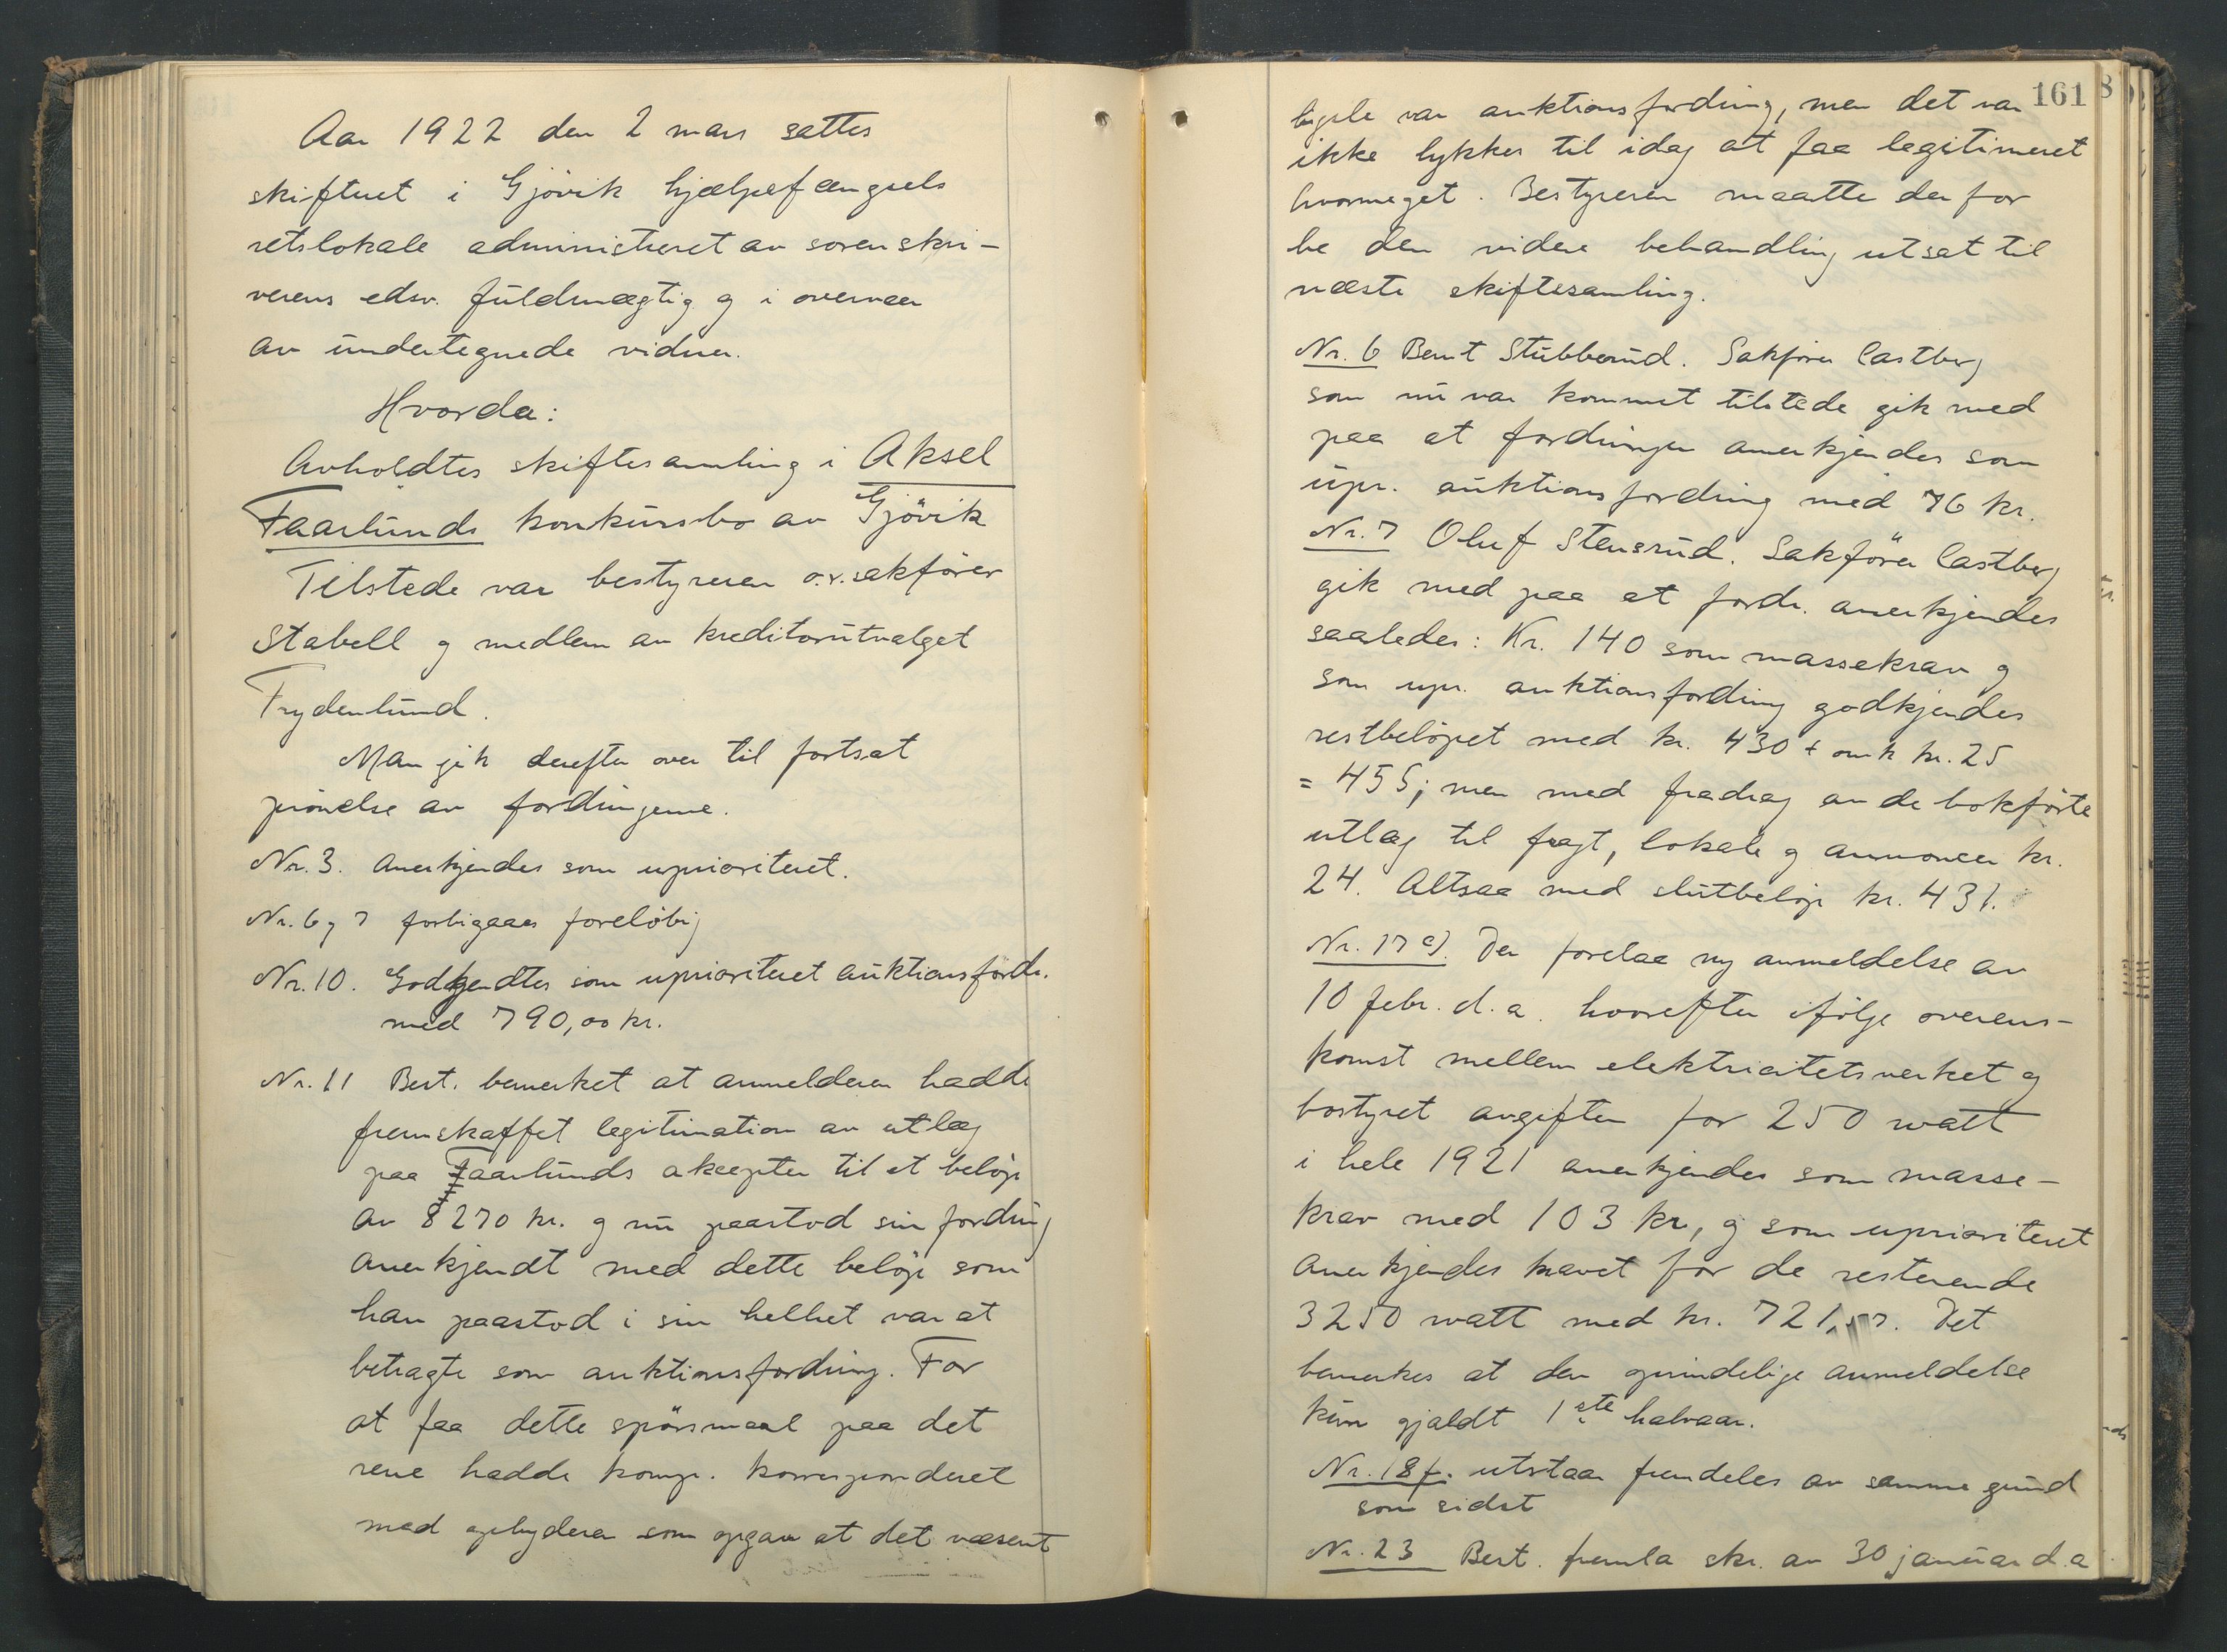 Aar 1922 den 2 mars sattes
skifteret i Gjövik hjælpefængsels
retslokale administreret av sorenskri-
verens edsv. fuldmægtig og i overvær
av undertegnede vidner.
Hvorda:
Avholdtes skiftesamling i Aksel
Faarlunds konkursbo av Gjövik
Tilstede var bestyreren o.r.sakfører
Stabell og medlem av kreditorutvalget
Frydenlund.
Man gik derefter over til fortsat
prövelse av fordringerne.
Nr. 3. Anerkjendes som uprioriteret.
Nr. 6 og 7 forbigaaes foreløbig
Nr. 10. Godkjendtes som uprioriteret auktionsfordr.
med 790,00 kr.
Nr. 11 Best. bemerket at anmelderen hadde
fremskaffet legitimation av utlæg
paa Faarlunds aksepter til et beløp
av 8270 kr. og nu paastod sin fordring
anerkjendt med dette beløp som
han paastod i sin helhet var at
betragte som auktionsfordring. For
at faa dette spörsmaal paa det
rene hadde komp. korresponderet
med opbyderen som opgav at det væsent
161
ligste var auktionsfordring, men det var
ikke lykkes til idag at faa legitimeret
hvormeget. Bestyreren maatte derfor
be den videre behandling utsat til
næste skiftesamling.
Nr. 6 Bernt Stubberud. Sakfører Castberg
som nu var kommet tilstede gik med
paa at fordringen anerkjendes som
upr. auktionsfordring med 76 kr.
Nr. 7 Oluf Stensrud. Sakförer Castberg
gik med paa at fordr. anerkjendes
saaledes: Kr. 140 som massekrav og
som upr. auktionsfordring godkjendes
restbelöpet med kr. 430 + omk kr. 25
= 455; men med fradrag av de bokförte
utlæg til fragt, lokale og annoncer kr.
24. Altsaa med slutbeløp kr. 431.
Nr. 17 c). Der forelaa ny anmeldelse av
10 febr. d.a. hvorefter ifølge overens-
komst mellem elektricitetsverket og
bostyret avgiften for 250 watt
i hele 1921 anerkjendes som masse-
krav med 103 kr, og som uprioriteret
anerkjendes kravet for de resterende
3250 watt med kr. 721, Det
bemerkes at den oprindelige anmeldelse
kun gjaldt 1ste halvaar.
Nr. 18 f. utstaar fremdeles av samme grund
som sidst
Nr. 23 Best. fremla skr. av 30 januar d.a